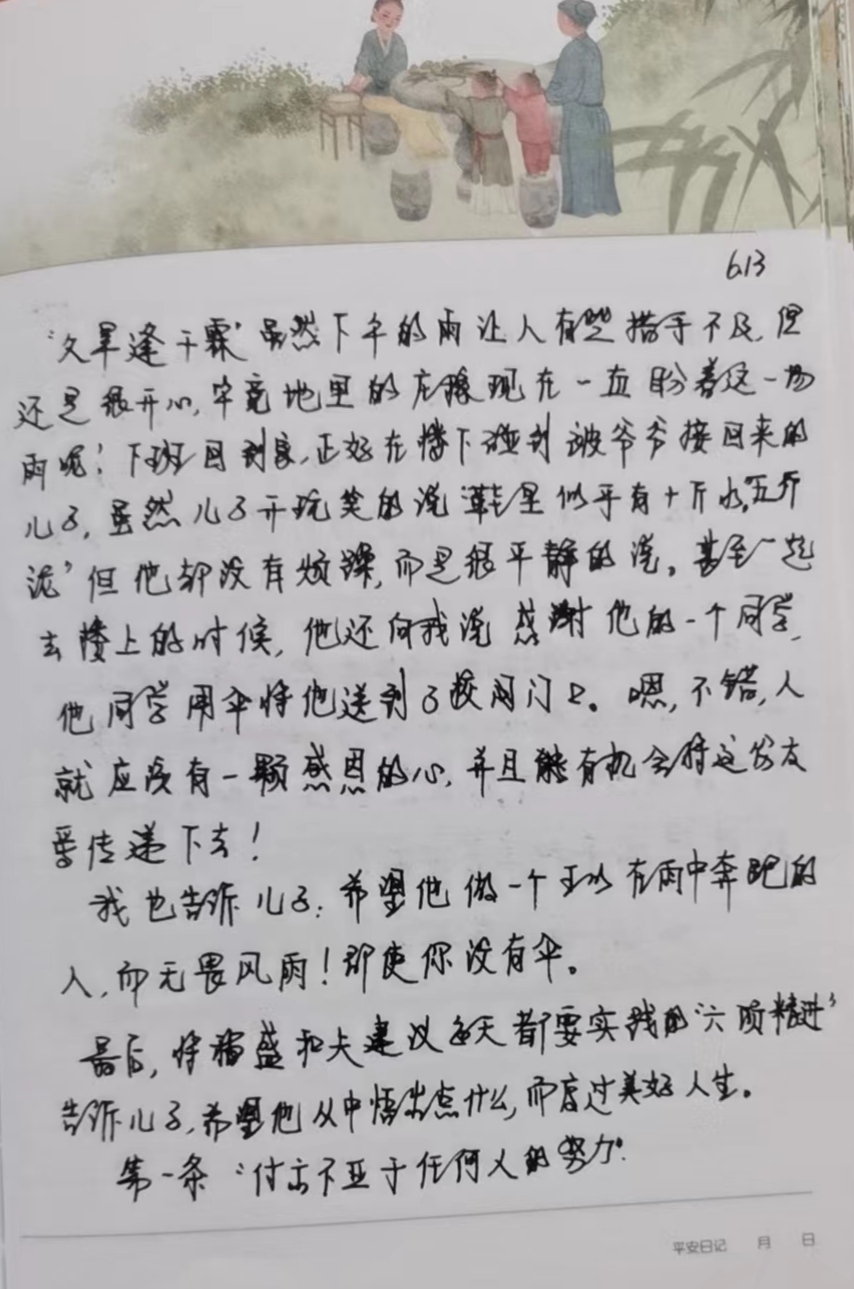 6.13
“久旱逢干霖”虽然下午的雨让人有些措手不及,但
还是很开心,毕竟地里的庄稼现在一直盼着这一场
雨呢!下班回到家,正好在楼下碰到被爷爷接回来的
儿子,虽然儿子开玩笑的说鞋里似乎有“十斤水,五斤
泥”但他却没有烦躁,而是很平静的说。甚至一起
去楼上的时候,他还向我说感谢他的一个同学,
他同学用伞将他送到了校门口。嗯,不错,人
就应该有一颗感恩的心,并且能有机会将这份友
爱传递下去!
我也告诉儿子:希望他做一个可以在雨中奔跑的
人,而无畏风雨!即使你没有伞。
最后,将稻盛和夫建议每天都要实践的“六项精进”
告诉儿子,希望他从中悟出点什么,而度过美好人生。
第一条“付出不亚于任何人的努力”
平安日记 月 日